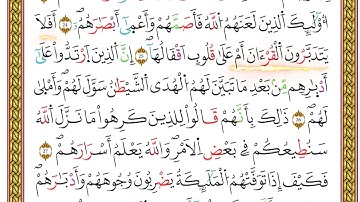 أُوْلَٰٓئِكَ ٱلَّذِينَ لَعَنَهُمُ ٱللَّهُ فَأَصَمَّهُمْ وَأَعْمَىٰٓ أَبْصَٰرَهُمْۖ 24 أَفَلَا
يَتَدَبَّرُونَ ٱلْقُرْءَانَ أَمْ عَلَىٰ قُلُوبٍ أَقْفَالُهَاۖ 25 إِنَّ ٱلَّذِينَ ٱرْتَدُّواْ عَلَىٰٓ
أَدْبَٰرِهِم مِّنۢ بَعْدِ مَا تَبَيَّنَ لَهُمُ ٱلْهُدَى ٱلشَّيْطَٰنُ سَوَّلَ لَهُمْ وَأَمْلَىٰ
لَهُمْۖ 26 ذَٰلِكَ بِأَنَّهُمْ قَالُواْ لِلَّذِينَ كَرِهُواْ مَا نَزَّلَ ٱللَّهُ
سَنُطِيعُكُمْ فِي بَعْضِ ٱلْأَمْرِۖ وَٱللَّهُ يَعْلَمُ أَسْرَارَهُمْۖ 27
فَكَيْفَ إِذَا تَوَفَّتْهُمُ ٱلْمَلَٰٓئِكَةُ يَضْرِبُونَ وُجُوهَهُمْ وَأَدْبَٰرَهُمْۖ